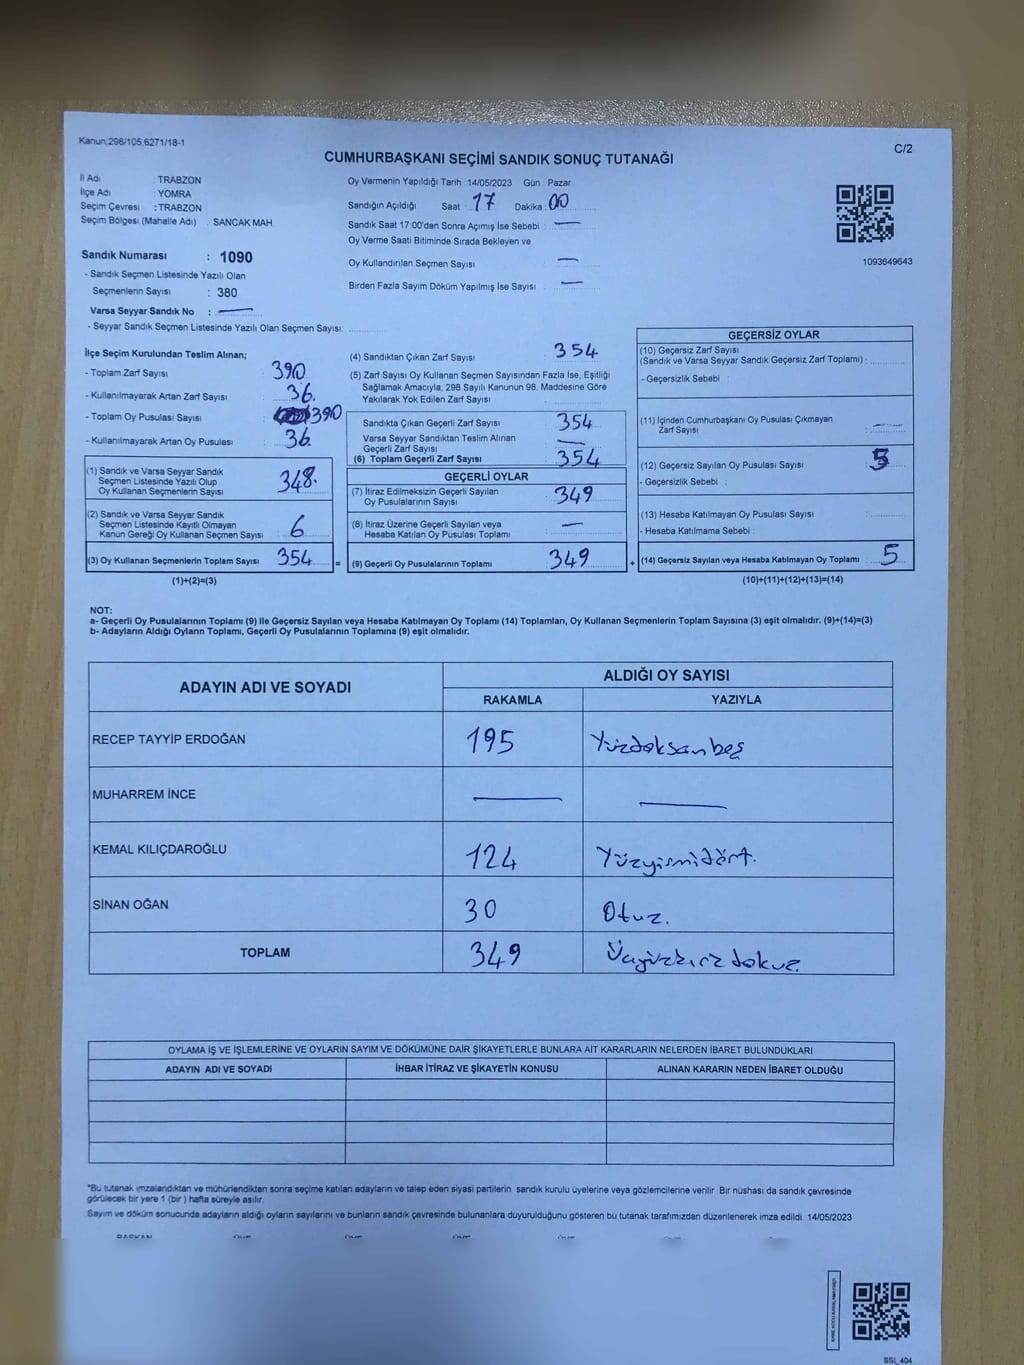 Kanun:298/105,6271/18-1
C/2
CUMHURBAŞKANI SEÇİMİ SANDIK SONUÇ TUTANAĞI
İl Adı : TRABZON
İlçe Adı : YOMRA
Seçim Çevresi : TRABZON
Seçim Bölgesi (Mahalle Adı) : SANCAK MAH
Sandık Numarası : 1090
- Sandık Seçmen Listesinde Yazılı Olan
Seçmenlerin Sayısı : 380
Varsa Seyyar Sandık No : —
- Seyyar Sandık Seçmen Listesinde Yazılı Olan Seçmen Sayısı:
Oy Vermenin Yapıldığı Tarih :14/05/2023 Gün : Pazar
Sandığın Açıldığı Saat : 17 Dakika : 00
Sandık Saat 17:00'den Sonra Açımış İse Sebebi : —
Oy Verme Saati Bitiminde Sırada Bekleyen ve
Oy Kullandırılan Seçmen Sayısı —
Birden Fazla Sayım Döküm Yapılmış İse Sayısı : —
1093649643
İlçe Seçim Kurulundan Teslim Alınan;
- Toplam Zarf Sayısı : 390
- Kullanılmayarak Artan Zarf Sayısı : 36.
- Toplam Oy Pusulası Sayısı : 390
- Kullanılmayarak Artan Oy Pusulası : 36
(1) Sandık ve Varsa Seyyar Sandık
Seçmen Listesinde Yazılı Olup
Oy Kullanan Seçmenlerin Sayısı : 348.
(2) Sandık ve Varsa Seyyar Sandık
Seçmen Listesinde Kayıtlı Olmayan
Kanun Gereği Oy Kullanan Seçmen Sayısı : 6
(3) Oy Kullanan Seçmenlerin Toplam Sayısı : 354
(1)+(2)=(3)
(4) Sandıktan Çıkan Zarf Sayısı : 354
(5) Zarf Sayısı Oy Kullanan Seçmen Sayısından Fazla İse, Eşitliği
Sağlamak Amacıyla; 298 Sayılı Kanunun 98. Maddesine Göre
Yakılarak Yok Edilen Zarf Sayısı :
Sandıkta Çıkan Geçerli Zarf Sayısı : 354
Varsa Seyyar Sandıktan Teslim Alınan
Geçerli Zarf Sayısı : —
(6) Toplam Geçerli Zarf Sayısı : 354
GEÇERLİ OYLAR
(7) İtiraz Edilmeksizin Geçerli Sayılan
Oy Pusulalarının Sayısı : 349
(8) İtiraz Üzerine Geçerli Sayılan veya
Hesaba Katılan Oy Pusulası Toplamı : —
= (9) Geçerli Oy Pusulalarının Toplamı : 349
GEÇERSİZ OYLAR
(10) Geçersiz Zarf Sayısı
(Sandık ve Varsa Seyyar Sandık Geçersiz Zarf Toplamı) :
- Geçersizlik Sebebi :
(11) İçinden Cumhurbaşkanı Oy Pusulası Çıkmayan
Zarf Sayısı : —
(12) Geçersiz Sayılan Oy Pusulası Sayısı : 5
- Geçersizlik Sebebi :
(13) Hesaba Katılmayan Oy Pusulası Sayısı :
- Hesaba Katılmama Sebebi :
+ (14) Geçersiz Sayılan veya Hesaba Katılmayan Oy Toplamı : 5
(10)+(11)+(12)+(13)=(14)
NOT:
a- Geçerli Oy Pusulalarının Toplamı (9) ile Geçersiz Sayılan veya Hesaba Katılmayan Oy Toplamı (14) Toplamları, Oy Kullanan Seçmenlerin Toplam Sayısına (3) eşit olmalıdır. (9)+(14)=(3)
b- Adayların Aldığı Oyların Toplamı, Geçerli Oy Pusulalarının Toplamına (9) eşit olmalıdır.
ADAYIN ADI VE SOYADI ALDIĞI OY SAYISI
RAKAMLA YAZIYLA
RECEP TAYYİP ERDOĞAN 195 Yüzdoksanbeş
MUHARREM İNCE — —
KEMAL KILIÇDAROĞLU 124 Yüzyirmidört.
SİNAN OĞAN 30 Otuz.
TOPLAM 349 Üçyüzkırkdokuz
OYLAMA İŞ VE İŞLEMLERİNE VE OYLARIN SAYIM VE DÖKÜMÜNE DAİR ŞİKAYETLERLE BUNLARA AİT KARARLARIN NELERDEN İBARET BULUNDUKLARI
ADAYIN ADI VE SOYADI İHBAR İTİRAZ VE ŞİKAYETİN KONUSU ALINAN KARARIN NEDEN İBARET OLDUĞU
*Bu tutanak imzalandıktan ve mühürlendikten sonra seçime katılan adayların ve talep eden siyasi partilerin sandık kurulu üyelerine veya gözlemcilerine verilir. Bir nüshası da sandık çevresinde
görülecek bir yere 1 (bir ) hafta süreyle asılır.
Sayım ve döküm sonucunda adayların aldığı oyların sayılarını ve bunların sandık çevresinde bulunanlara duyurulduğunu gösteren bu tutanak tarafımızdan düzenlenerek imza edildi 14/05/2023
SSI_404